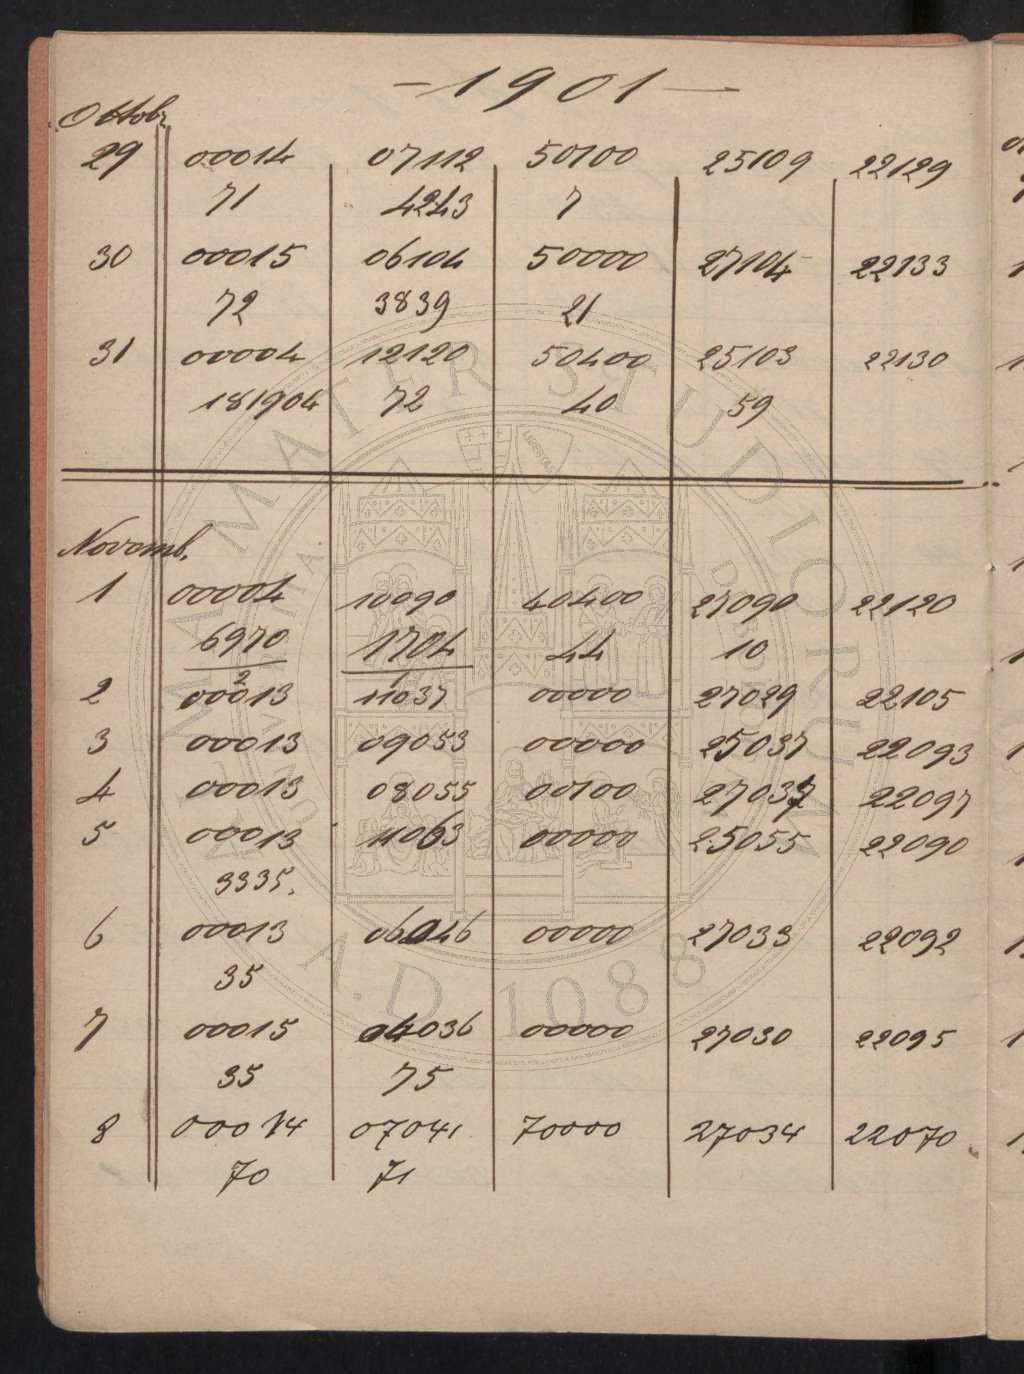 – 1901 –
Ottob.
29 00014 07112 50100 25109 22129
71 4243 7
30 00015 06104 50000 27104 22133
72 3839 21
31 00004 12120 50400 25103 22130
181904 72 40 59
Novemb.
1 00004 10090 40400 27090 22120
6970 1704 44 10
2
2 00013 11037 00000 27029 22105
3 00013 09053 00000 25037 22093
4 00013 08055 00100 27037 22097
5 00013 11063 00000 25055 22090
3335.
6 00013 06046 00000 27033 22092
35
7 00015 04036 00000 27030 22095
35 75
8 00014 07041 70000 27034 22070
70 71
ALMA MATER STUDIORUM
A.D. 1088